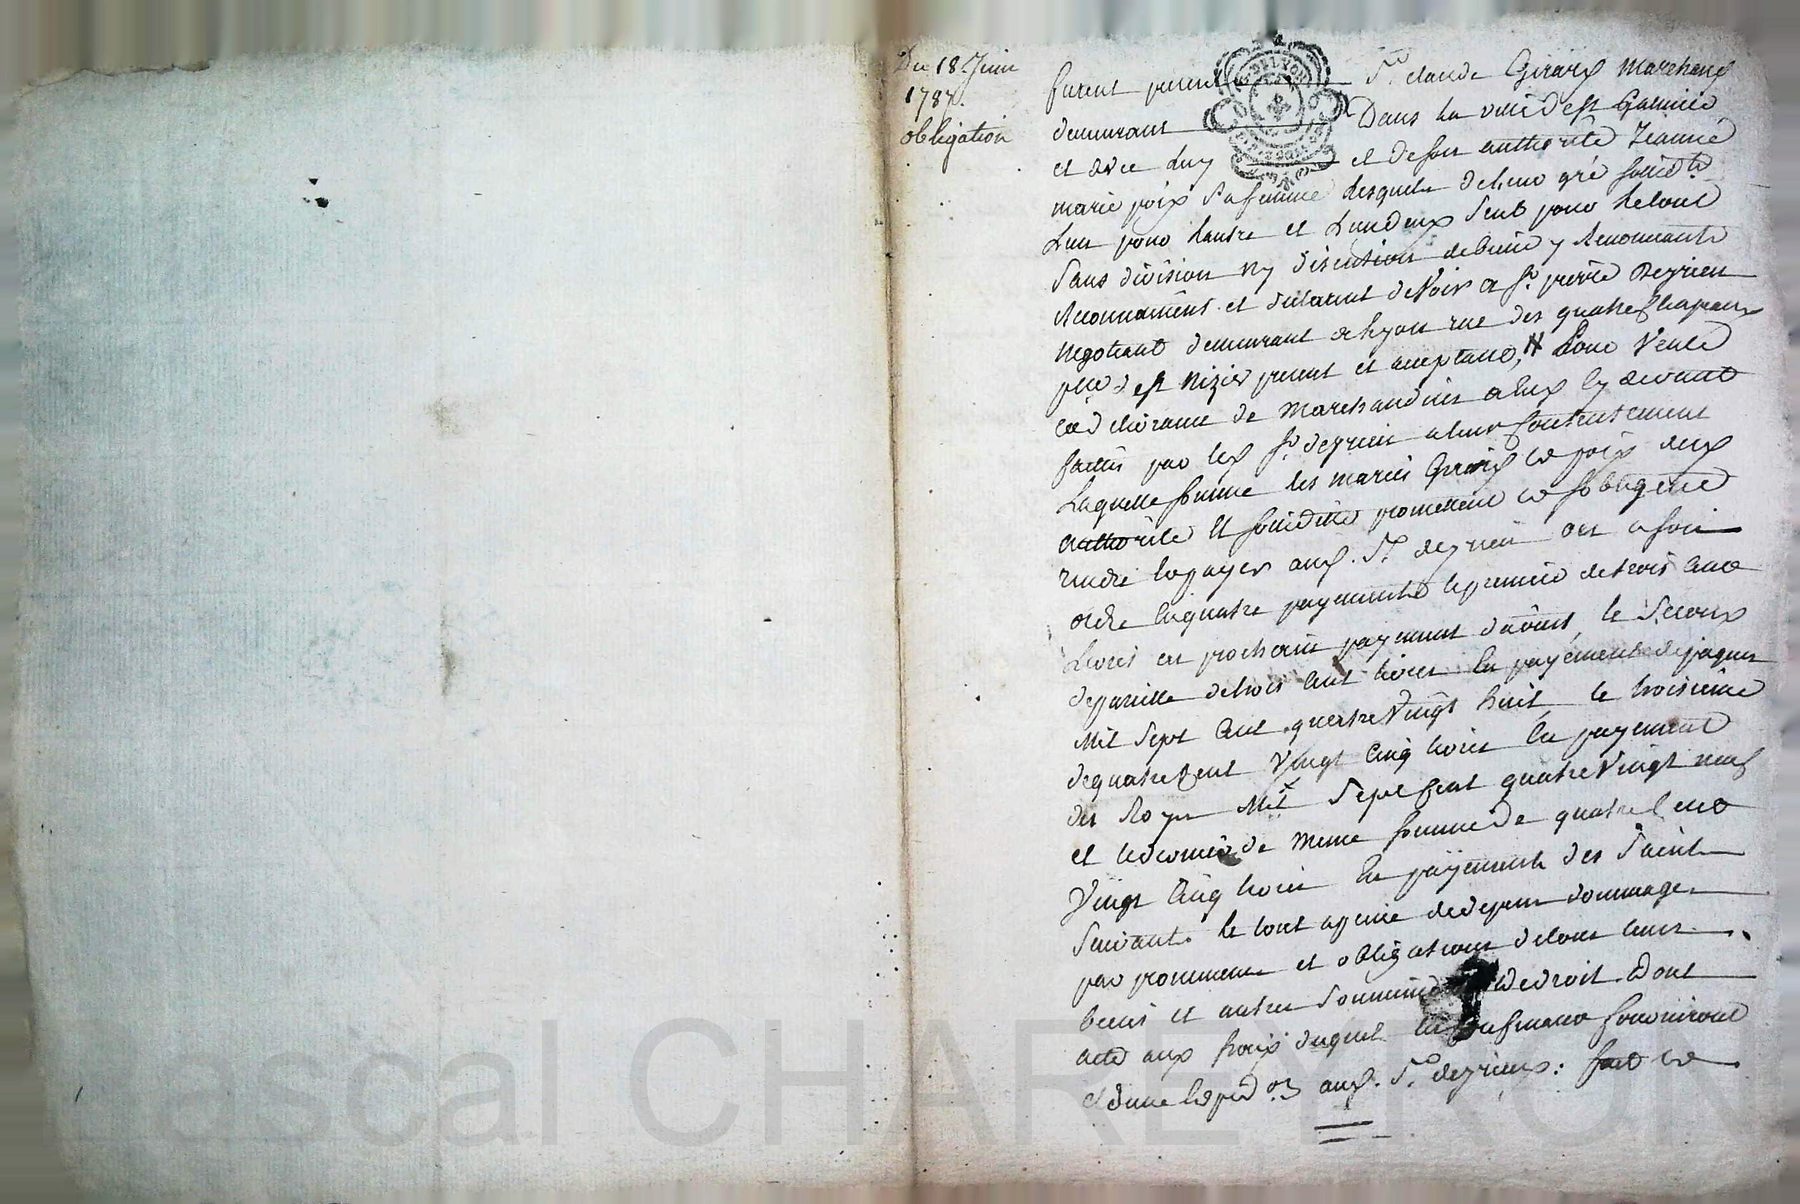 Du 18. Juin
1787.
obligation
furent presents Sr. claude Girard Marchand
demeurant Dans la ville de st Galmier
et avec luy et de son authorité Jeanne
marie poix Sa femme lesquels de leur gré solid.té
Lun pour Lautre et Lun deux Seul pour le tout
Sans division ny discution de biens y Renonçants
Reconnaissent et declarent devoir a Sr. pierre Deyrieu
Negotiant demeurant a Lyon rue des quatre Chapeaux
psse de st Nizier present et acceptant, pour Vente
et delivrance de Marchandises a Eux cy devant
faittes par led Sr. deyrieu a leur Contentement
Laquelle somme les mariés Girard et poix deux
authorité et solidité promettent et sobligent
rendre et payer aud. Sr. deyrieu ou a son
ordre En quatre payements le premier de trois Cent
Livres en prochain payement daoust, le Second
de pareille de trois Cent livres En payement de
Mil Sept Cent quatre Vingt huit, le troisieme
de quatre Cent Vingt Cinq livres En payement
des Roys Mil Sept Cent quatre Vingt neuf
et le dernier de meme somme de quatre Cent
Vingt Cinq livres En payement des Saints
Suivant. le tout a peine de depens dommages
par promesses et obligations de tous leurs
biens et autres Soumissions de droit. Dont
acte aux fraix duquel les Confessants fourniront
et dune Expedon aud. Sr. deyrieux: fait et
Pascal CHAREYRON